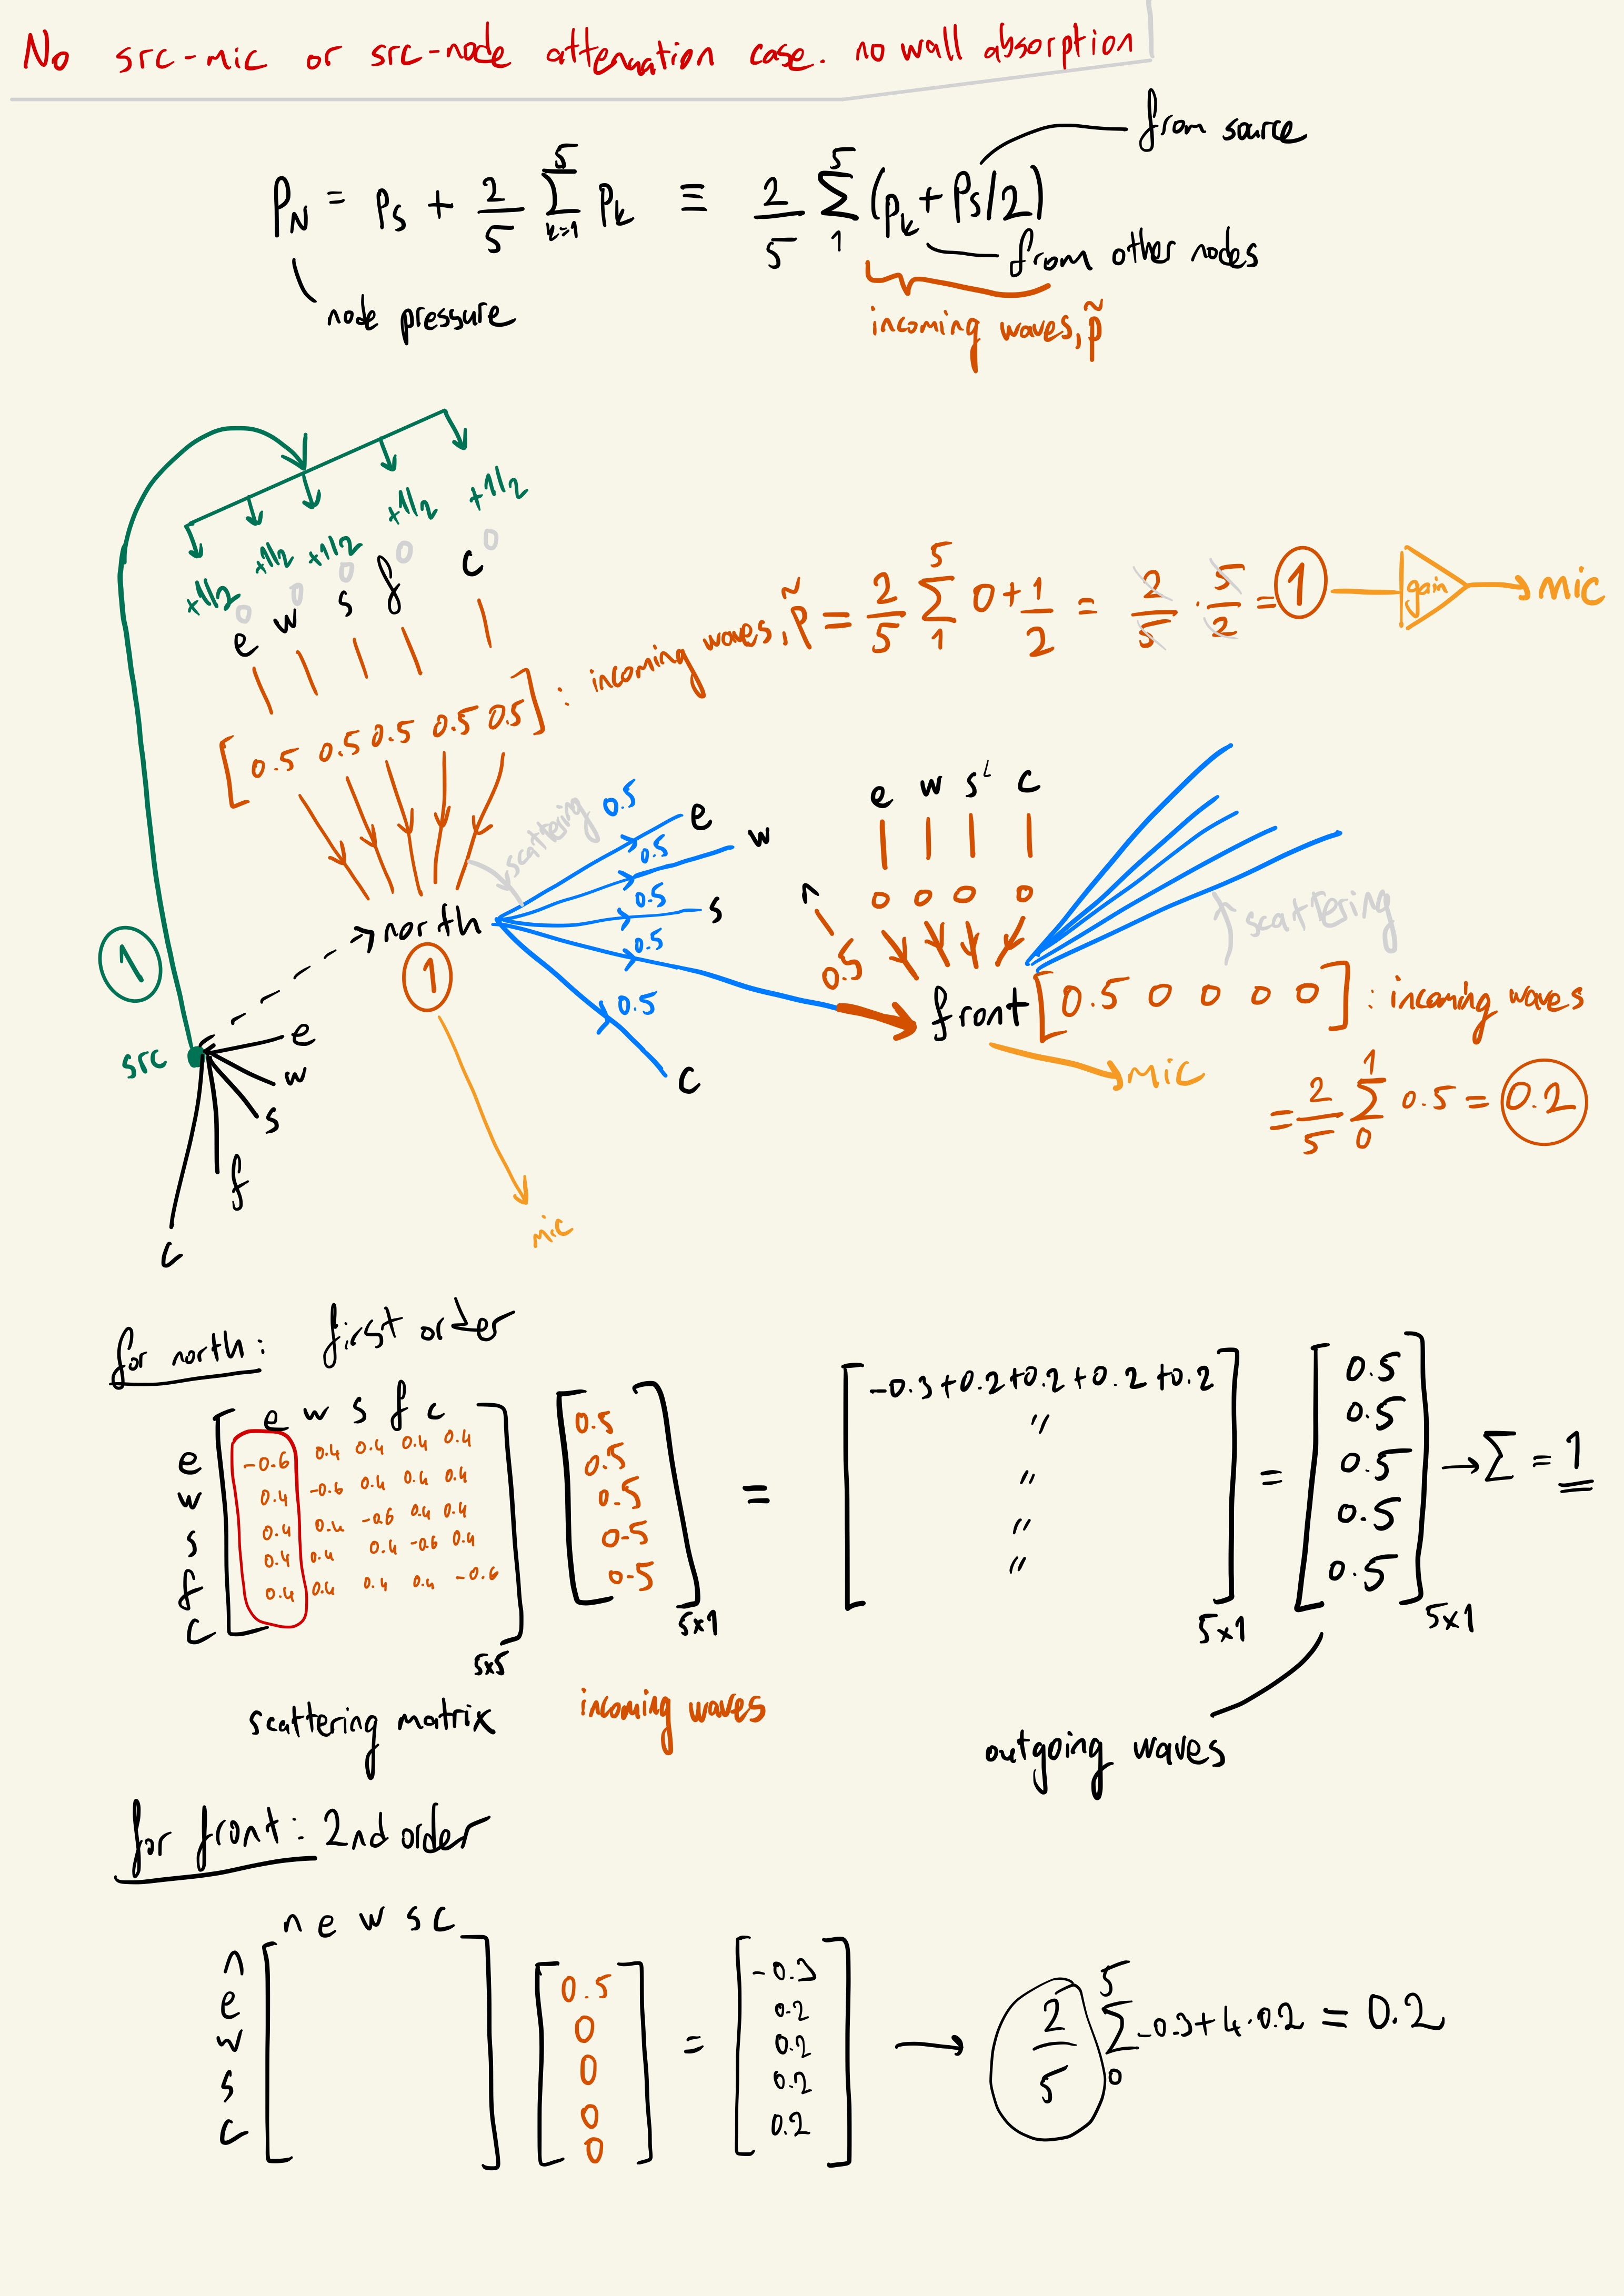 No src-mic or src-node attenuation case. no wall absorption
from source
P_N = P_S + 2/5 5 Σ k=1 P_k ≡ 2/5 5 Σ 1 (P_k + P_S/2)
from other nodes
node pressure
incoming waves, p̃
+1/2 +1/2 +1/2 +1/2 +1/2
0 0 0 0 0
e w s f c
[0.5 0.5 0.5 0.5 0.5] : incoming waves, p̃ = 2/5 5 Σ 1 0 + 1/2 = 2/5 · 5/2 = 1 gain mic
scattering
0.5 e
0.5 w
0.5 s
0.5
0.5 c
north
1
mic
1
src
e
w
s
f
c
n e w s c
0.5 0 0 0 0
scattering
front [0.5 0 0 0 0] : incoming waves
mic
= 2/5 1 Σ 0 0.5 = 0.2
for north: first order
e w s f c
e -0.6 0.4 0.4 0.4 0.4
w 0.4 -0.6 0.4 0.4 0.4
s 0.4 0.4 -0.6 0.4 0.4
f 0.4 0.4 0.4 -0.6 0.4
c 0.4 0.4 0.4 0.4 -0.6
5x5
0.5
0.5
0.5
0.5
0.5
5x1
=
-0.3+0.2+0.2+0.2+0.2
"
"
"
"
5x1
=
0.5
0.5
0.5
0.5
0.5
5x1
→ Σ = 1
scattering matrix
incoming waves
outgoing waves
for front: 2nd order
n e w s c
n
e
w
s
c
0.5
0
0
0
0
=
-0.3
0.2
0.2
0.2
0.2
→ 2/5 5 Σ 0 -0.3+4·0.2 = 0.2